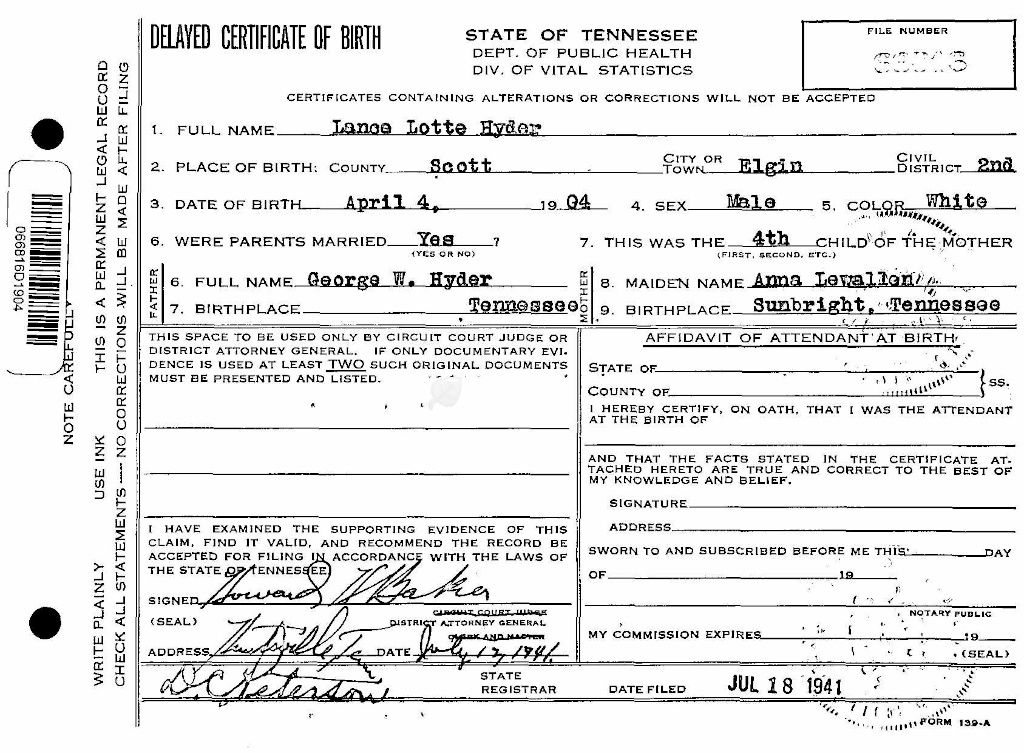 DELAYED CERTIFICATE OF BIRTH
STATE OF TENNESSEE
DEPT. OF PUBLIC HEALTH
DIV. OF VITAL STATISTICS
FILE NUMBER
CERTIFICATES CONTAINING ALTERATIONS OR CORRECTIONS WILL NOT BE ACCEPTED
1. FULL NAME Lance Lotte Hyder
2. PLACE OF BIRTH: COUNTY Scott CITY OR TOWN Elgin CIVIL DISTRICT 2nd
3. DATE OF BIRTH April 4, 1904 4. SEX Male 5. COLOR White
6. WERE PARENTS MARRIED Yes ? 7. THIS WAS THE 4th CHILD OF THE MOTHER
(YES OR NO) (FIRST, SECOND, ETC.)
FATHER
6. FULL NAME George W. Hyder
7. BIRTHPLACE Tennessee
MOTHER
8. MAIDEN NAME Anna Lewallen
9. BIRTHPLACE Sunbright, Tennessee
THIS SPACE TO BE USED ONLY BY CIRCUIT COURT JUDGE OR
DISTRICT ATTORNEY GENERAL. IF ONLY DOCUMENTARY EVI-
DENCE IS USED AT LEAST TWO SUCH ORIGINAL DOCUMENTS
MUST BE PRESENTED AND LISTED.
I HAVE EXAMINED THE SUPPORTING EVIDENCE OF THIS
CLAIM, FIND IT VALID, AND RECOMMEND THE RECORD BE
ACCEPTED FOR FILING IN ACCORDANCE WITH THE LAWS OF
THE STATE OF TENNESSEE
SIGNED Howard H Baker
(SEAL)
CIRCUIT COURT JUDGE
DISTRICT ATTORNEY GENERAL
CLERK AND MASTER
ADDRESS Huntsville Tenn DATE July 17, 1941.
AFFIDAVIT OF ATTENDANT AT BIRTH
STATE OF
COUNTY OF
SS.
I HEREBY CERTIFY, ON OATH, THAT I WAS THE ATTENDANT
AT THE BIRTH OF
AND THAT THE FACTS STATED IN THE CERTIFICATE AT-
TACHED HERETO ARE TRUE AND CORRECT TO THE BEST OF
MY KNOWLEDGE AND BELIEF.
SIGNATURE
ADDRESS
SWORN TO AND SUBSCRIBED BEFORE ME THIS DAY
OF 19
NOTARY PUBLIC
MY COMMISSION EXPIRES 19
(SEAL)
D. C. Peterson STATE REGISTRAR DATE FILED JUL 18 1941
FORM 139-A
WRITE PLAINLY USE INK THIS IS A PERMANENT LEGAL RECORD
CHECK ALL STATEMENTS — NO CORRECTIONS WILL BE MADE AFTER FILING
NOTE CAREFULLY
066816D1904